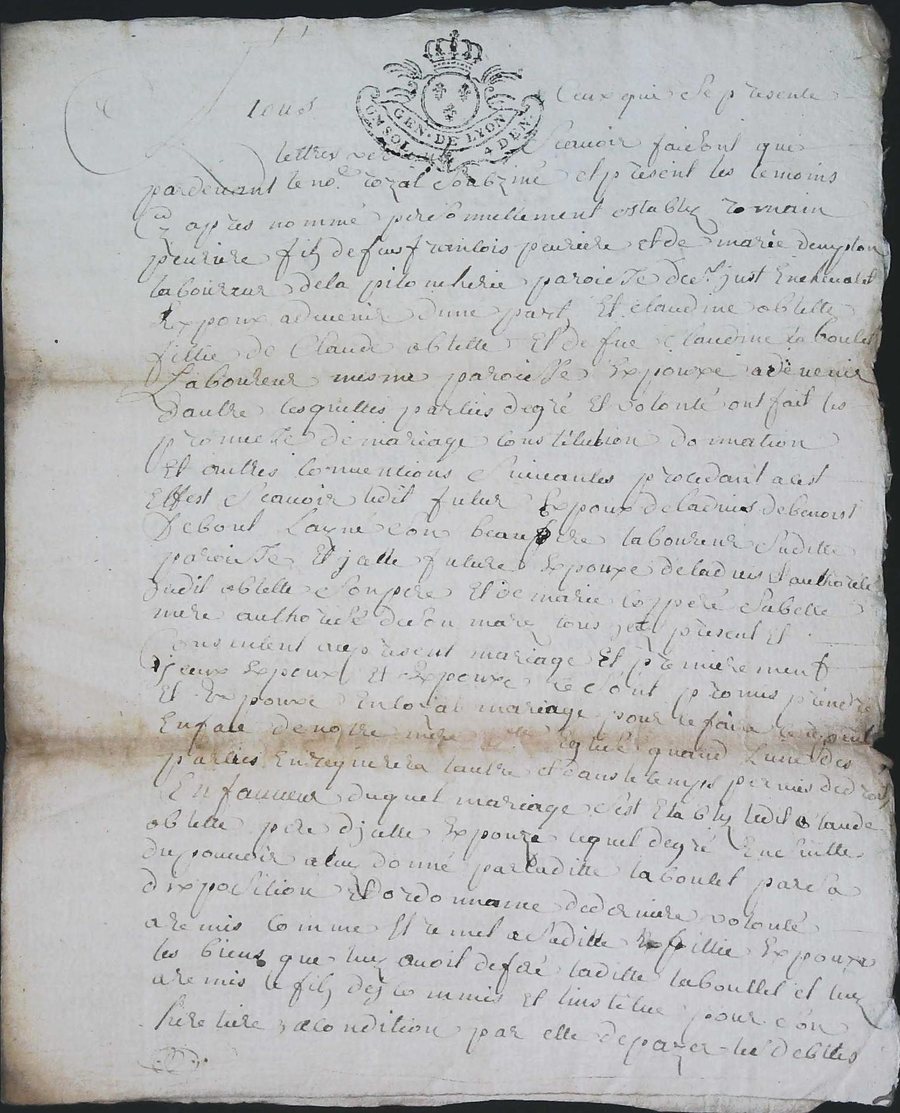 GEN. DE LYON
UM SOL 4 DEN.
A Tous Ceux qui Ses présente
lettres verront Scavoir faisont que
pardevant le no.re royal soubzné et présent les temoins
Cy apres nommé personnellement establez romain
peuriere filz de fus francois peuriere et de marie
laboureur dela paroisse de St just Enchevalet
Expoux advenir dune part Et claudine obtelle
fillie de Claude obtelle Et de fue Claudine laboulet
Laboureur mesme paroisse Expouxe advenir
dautre lesquelles parties degré Et volonté ont fait les
promesse de mariage constitution donnation
Et autres conventions Suivantes procedant a cest
Effest Scavoir ledit futur Expoux deladvis debenoist
Debout Layné son beaufrere laboureur Suditte
paroisse Et jcelle future Expouxe deladvis Et authorité
dudit obtelle Sonpere Et de marie Sabelle
mere authorisée deson mary tous jcy présent Et
Consentent au présent mariage Et premierement
jceux Expoux Et Expouxe se Sont promis prendre
Et Expouxe En loial mariage pour le faire
Enface de nostre mere Eglise quand lune des
parties En requerera lautre Et dans le temps permis dedroit
En faveur duquel mariage Sest Etably ledit Claude
obtelle pere djcelle Expouxe lequel degré Ensuitte
du pouvoir a luy donné par laditte laboulet par Sa
dixposition Et ordonnance dederniere volonté
aremis comme Et remet a Saditte fillie Expouxe
les biens que luy avoit defré laditte laboullet et luy
aremis le filz dejcommis Et linstitue pour Son
heretiere acondition par elle depayer les debttes